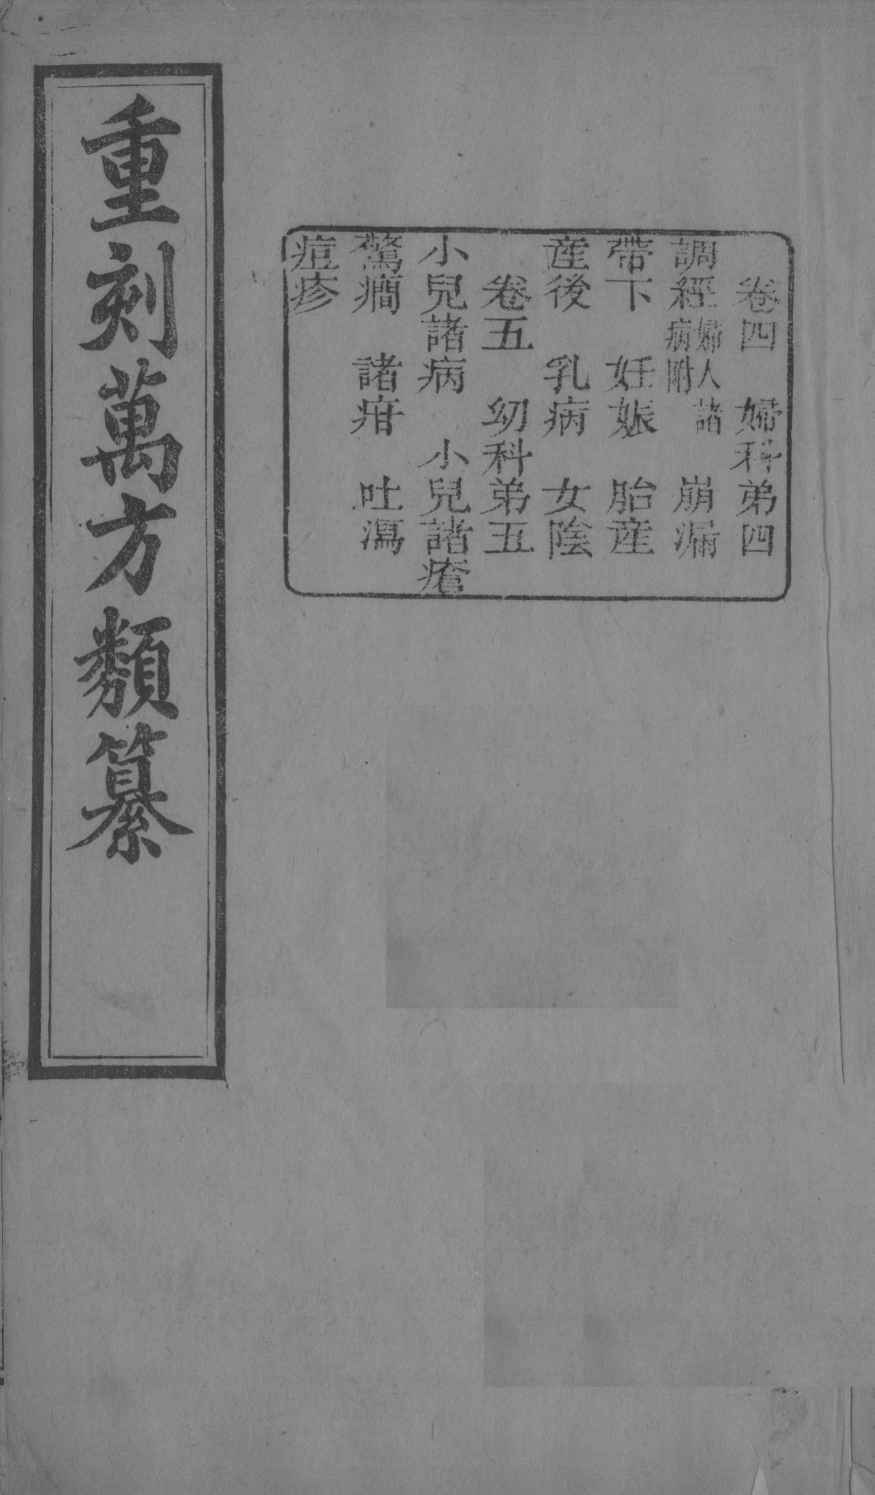 卷四　婦科弟四
調經婦人諸病附　崩漏
帶下　妊娠　胎産
産後　乳病　女陰
卷五　幼科弟五
小兒諸病　小兒諸瘡
驚癎　諸疳　吐瀉
痘疹
重刻萬方類纂